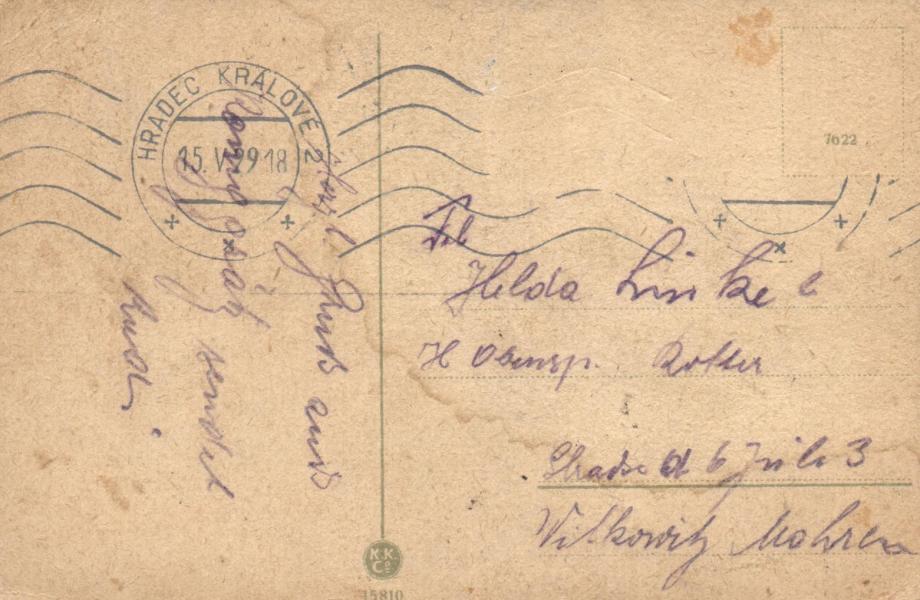 HRADEC KRÁLOVÉ 2
15.V.29 18
7622
Herzl Gruß aus
sendet
Rudi.
Frl
Hilda Linke
H Obensp. Rotter
Strasse d 6 Juli 3
Witkowitz Mähren
K.K.
Co
15810